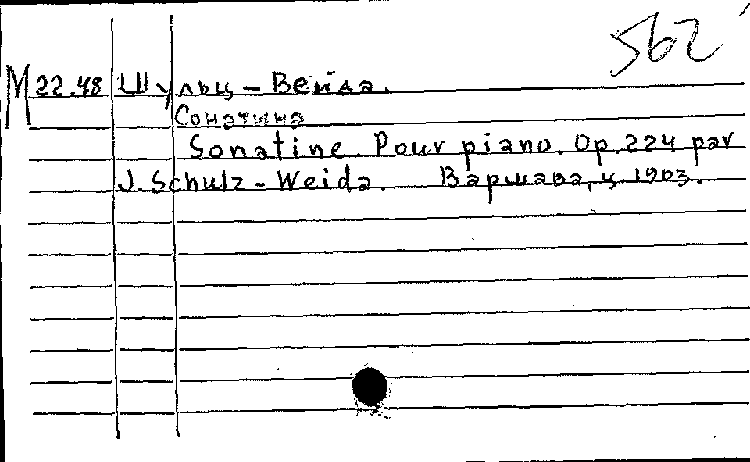 562
М 22.48 Шульц-Вейда.
Сонатина
Sonatine Pour piano. Op. 224 par
J. Schulz-Weida. Варшава, ц. 1903.